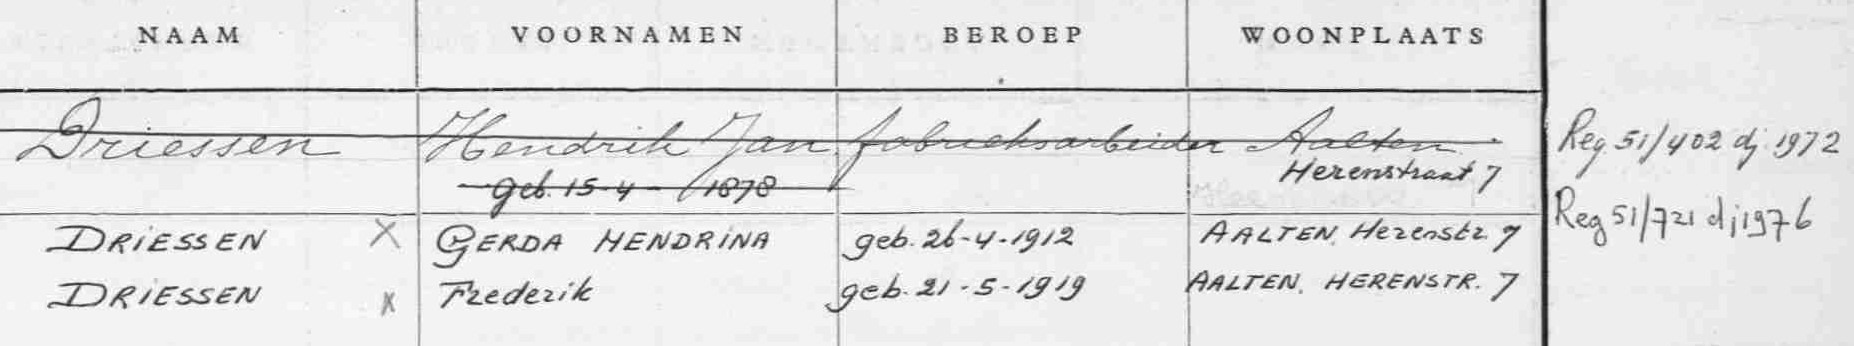 NAAM VOORNAMEN BEROEP WOONPLAATS
Driessen Hendrik Jan fabrieksarbeider Aalten Reg 51/402 dj 1972
geb. 15-4-1878 Herenstraat 7
Reg 51/721 dj 1976
DRIESSEN X GERDA HENDRINA geb. 26-4-1912 AALTEN, Herenstr. 7
DRIESSEN x Frederik geb. 21-5-1919 AALTEN, HERENSTR. 7